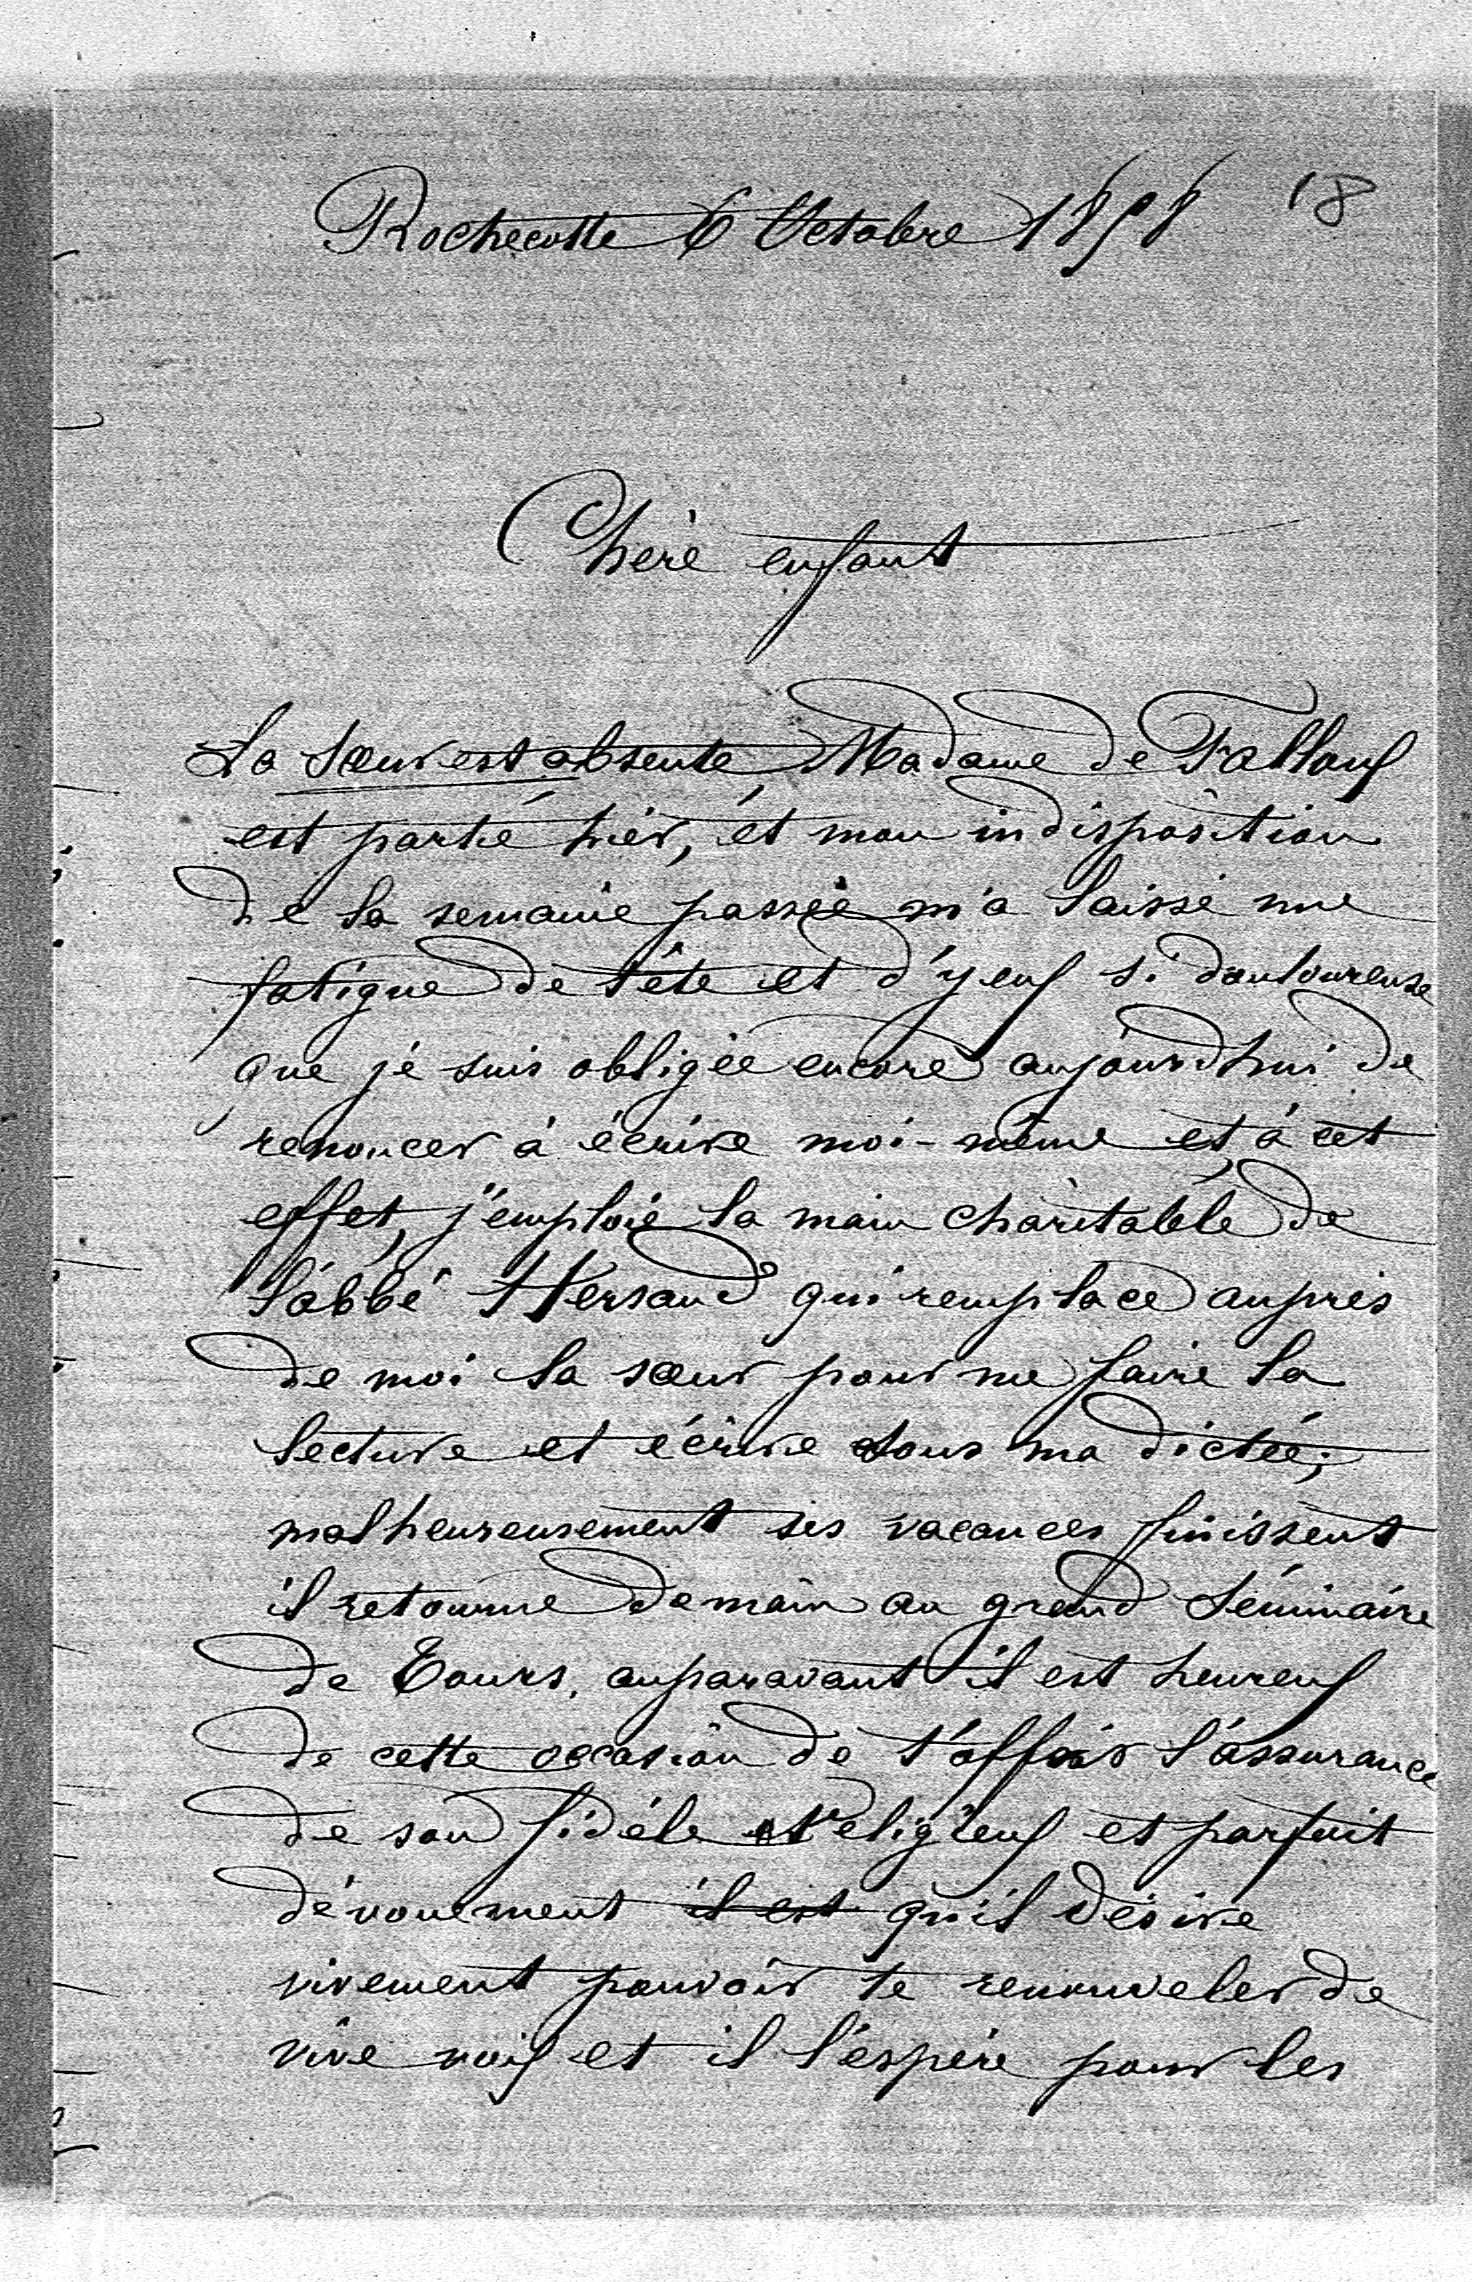 Rochecotte 6 Octobre 1858 18
Chère enfant
La sœur est absente Madame de Falloux
est partie hier, et mon indisposition
de la semaine passée m'a laissé une
fatigue de tête et d'yeux si douloureuse
que je suis obligée encore aujourd'hui de
renoncer à écrire moi-même et, à cet
effet, j'emploie la main charitable de
l'abbé Hersand qui remplace auprès
de moi la sœur pour me faire la
lecture et écrire sous ma dictée;
malheureusement ses vacances finissent
il retourne demain au grand Séminaire
de Tours, auparavant il est heureux
de cette occasion de t'offrir l'assurance
de son fidèle religieux et parfait
dévouement il est qu'il désire
vivement pouvoir te renouveler de
vive voix et il l'espère pour les